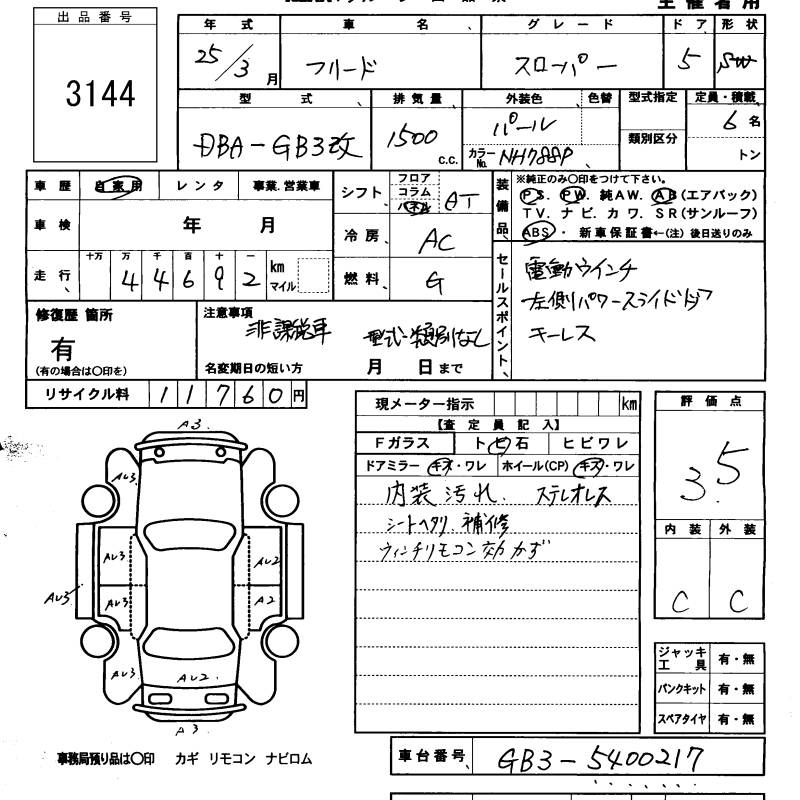 主催者用
出品番号
3144
年式 車名、 グレード ドア 形状
25/3月 フリード スロパー 5 SW
型式、 排気量、 外装色 色替 型式指定 定員・積載
DBA-GB3改 1500 c.c. パール 類別区分 6名
カラーNo. NH788P トン
車歴 自家用 レンタ 事業.営業車 シフト フロア コラム パネル AT
装備品、 ※純正のみ○印をつけて下さい。
PS. PW. 純AW. AB(エアバック)
TV. ナビ. カワ. SR(サンルーフ)
ABS・新車保証書←(注)後日送りのみ
車検 年 月 冷房 AC
走行、 十万 万 千 百 十 一
44692 km マイル 燃料 G
セールスポイント、
電動ウインチ
左側パワースライドドア
キーレス
修復歴 箇所
有
(有の場合は○印を)
注意事項
非課税車 型式・類別なし
名変期日の短い方 月 日まで
リサイクル料 11760円
現メーター指示 km
【査定員記入】
Fガラス トビ石 ヒビワレ
ドアミラー キズ・ワレ ホイール(CP) キズ・ワレ
内装汚れ. ステレオレス
シートヘタリ、補修
ウィンチリモコン効かず
評価点
3.5
内装 外装
C C
A3.
AU3
AU3 AU2
AU3 AU3 A2
AU3 AU2
A3
ジャッキ工具 有・無
パンクキット 有・無
スペアタイヤ 有・無
事務局預り品は○印 カギ リモコン ナビロム
車台番号、 GB3-5400217